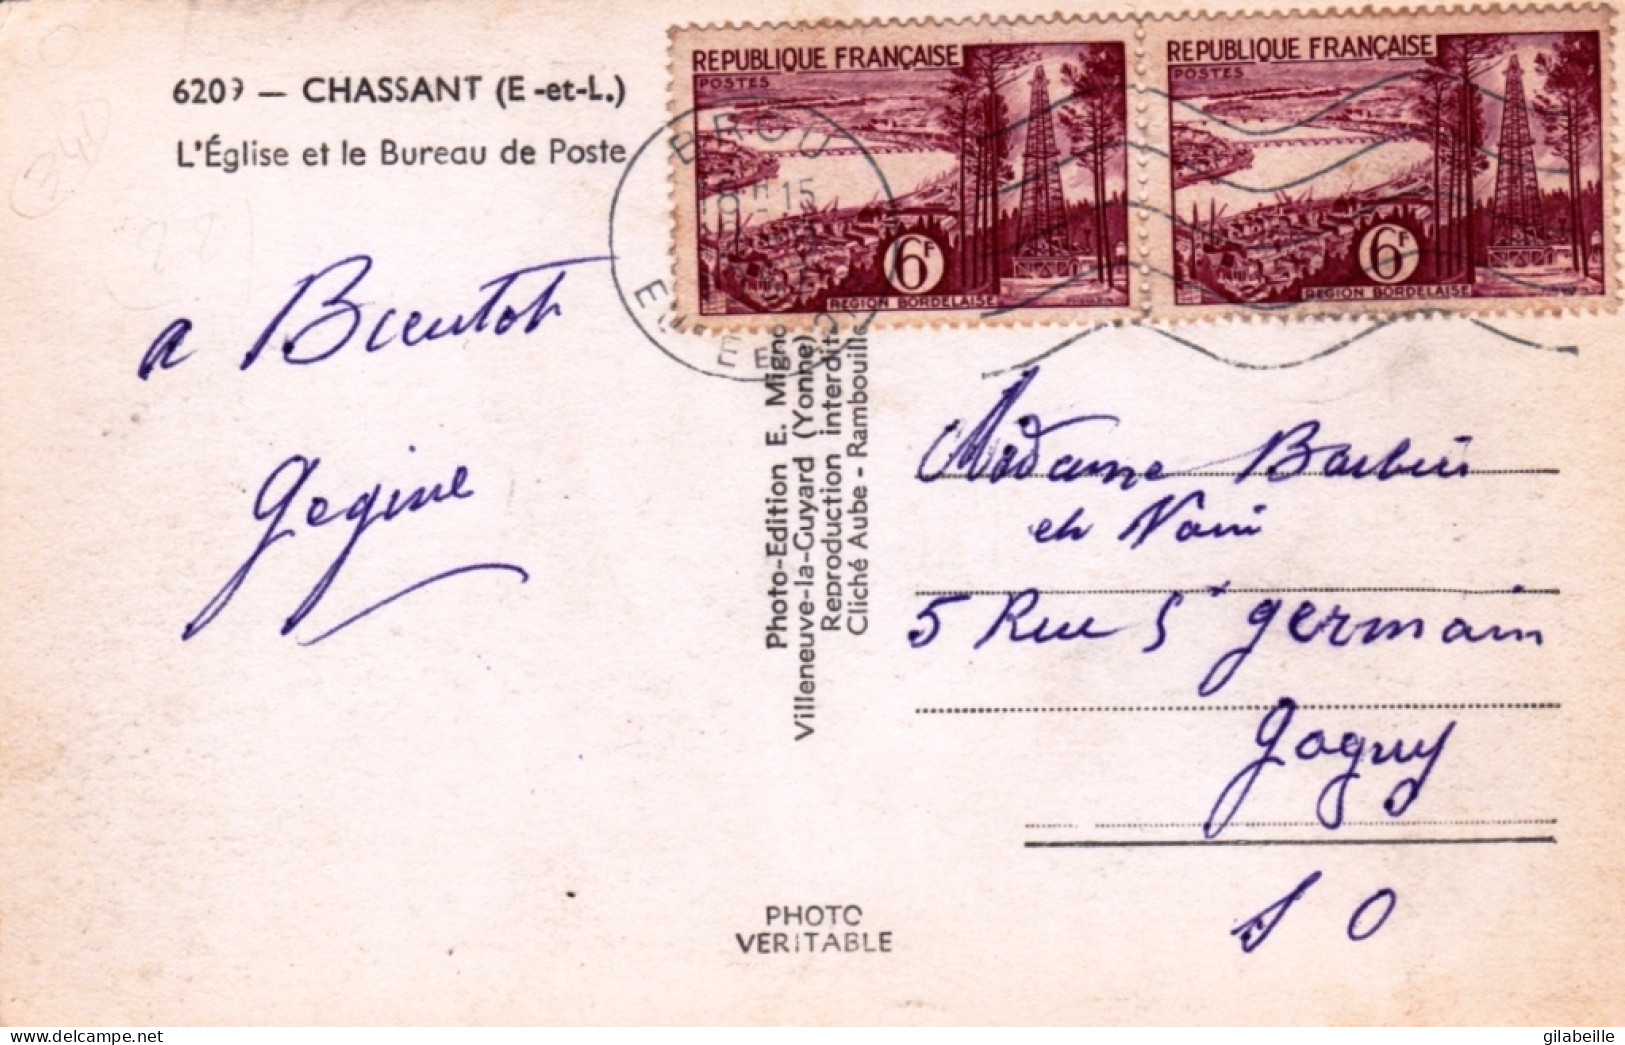 6209 — CHASSANT (E-et-L.)
L'Église et le Bureau de Poste
REPUBLIQUE FRANÇAISE
POSTES
6F
REGION BORDELAISE
REPUBLIQUE FRANÇAISE
POSTES
6F
REGION BORDELAISE
BROU
15
EURE
a Bientot
Gegine
Photo-Edition E. Migno
Villeneuve-la-Guyard (Yonne)
Reproduction interdite
Cliché Aube - Rambouille
Madame Barbier
et Noni
5 Rue St germain
Gagny
S O
PHOTO
VERITABLE
delcampe.net
gilabeille